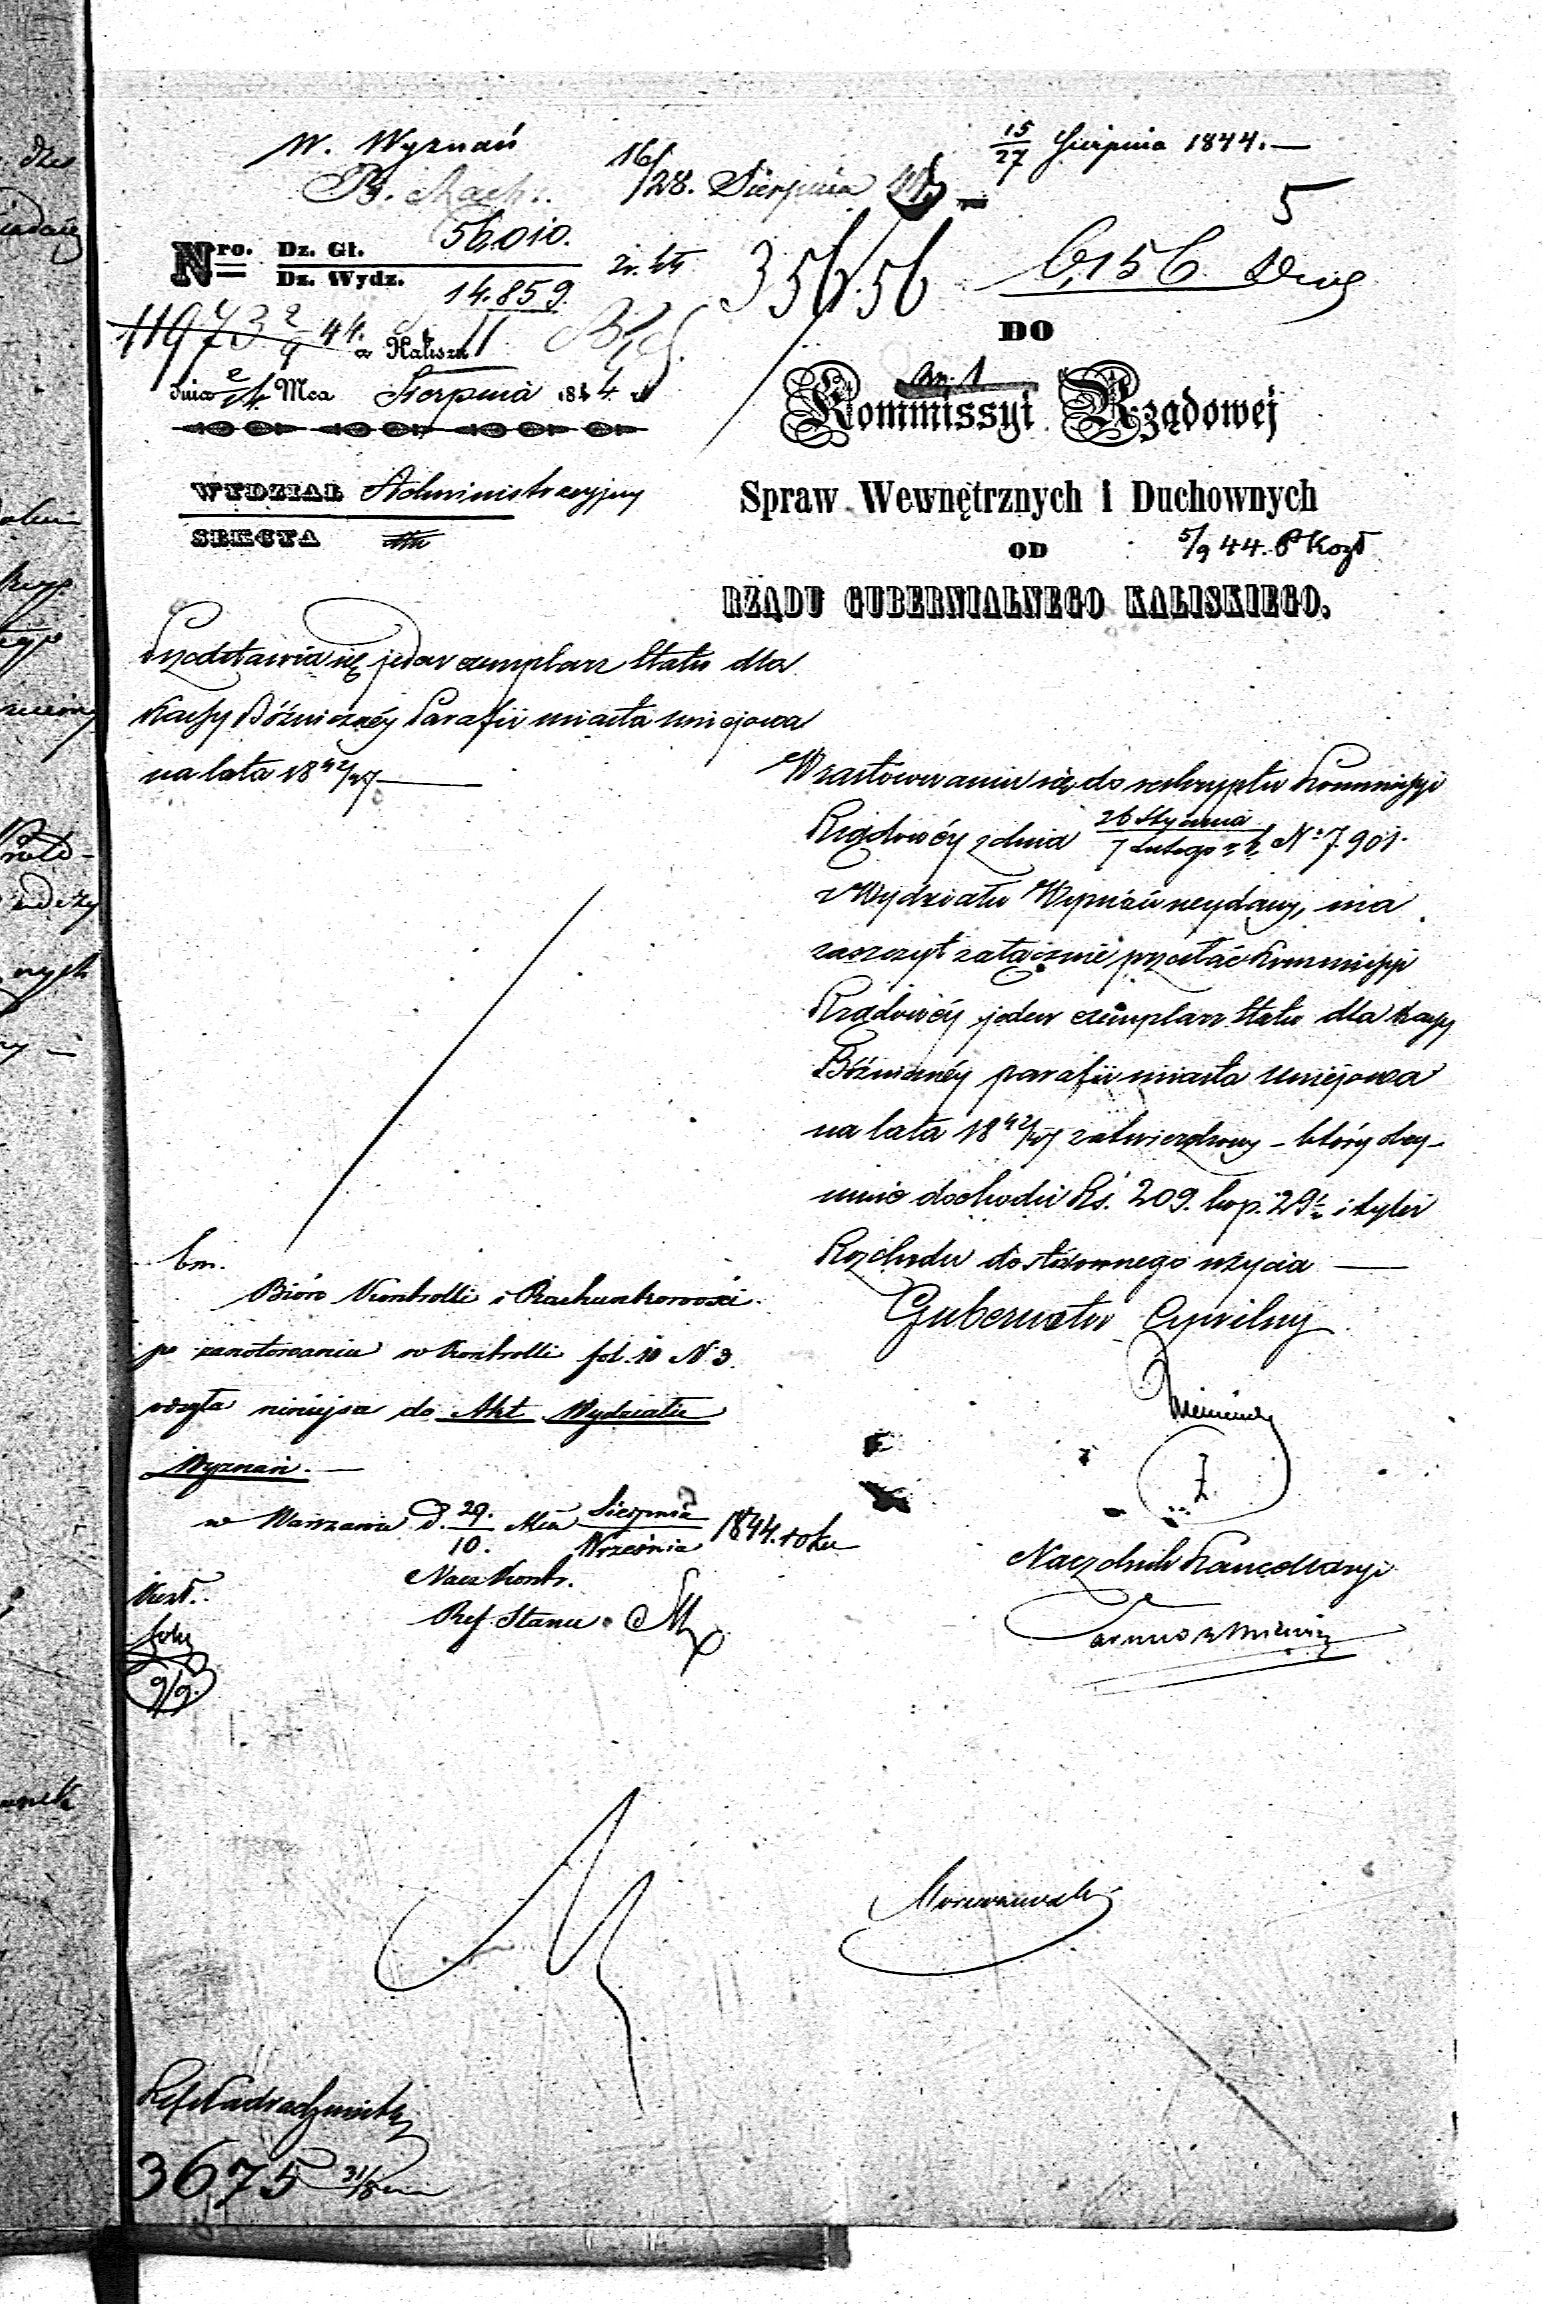 W. Wyznań
15/27 Sierpnia 1844. —
16/28. Sierpnia
5
Nro. Dz. Gł. 56,010.
Dz. Wydz. 14.859.
35656
6,156
11973 2/9 44.
w Kaliszu
dnia 2/14 Mca Sierpnia 1844 r.
DO
Kommissyi Rządowej
Spraw Wewnętrznych i Duchownych
OD
5/9 44.
RZĄDU GUBERNIALNEGO KALISKIEGO.
WYDZIAŁ Administracyjny
SEKCYA
Przedstawia się jeden exemplarz Etatu dla
Kassy Bóżniczney Parafii miasta Uniejowa
na lata 18 42/47
W zastosowaniu się do reskryptu Kommissyi
Rządowéy z dnia 26 Stycznia / 7 Lutego r. b. No 7.901.
z Wydziału Wyznań wydany, ma
zaszczyt załącznie przesłać Kommissyi
Rządowéy jeden exemplarz Etatu dla Kassy
Bóżniczney parafii miasta Uniejowa
na lata 18 42/47 zatwierdzony – który obey-
muie dochodu Rs. 209. kop. 29 1/2 i tyleż
Rozchodu do stósownego użycia —
Gubernator Cywilny
Naczelnik Kancellaryi
Bióro Kontrolli i Rachunkowości
po zanotowaniu w Kontrolli fol. 10 N. 3.
odsyła niniejsze do Akt Wydziału
Wyznań. —
w Warszawie d. 29./10. Mca Sierpnia/Września 1844. roku
Nacz Kontr.
Ref. Stanu
9/9.
3675 31/8